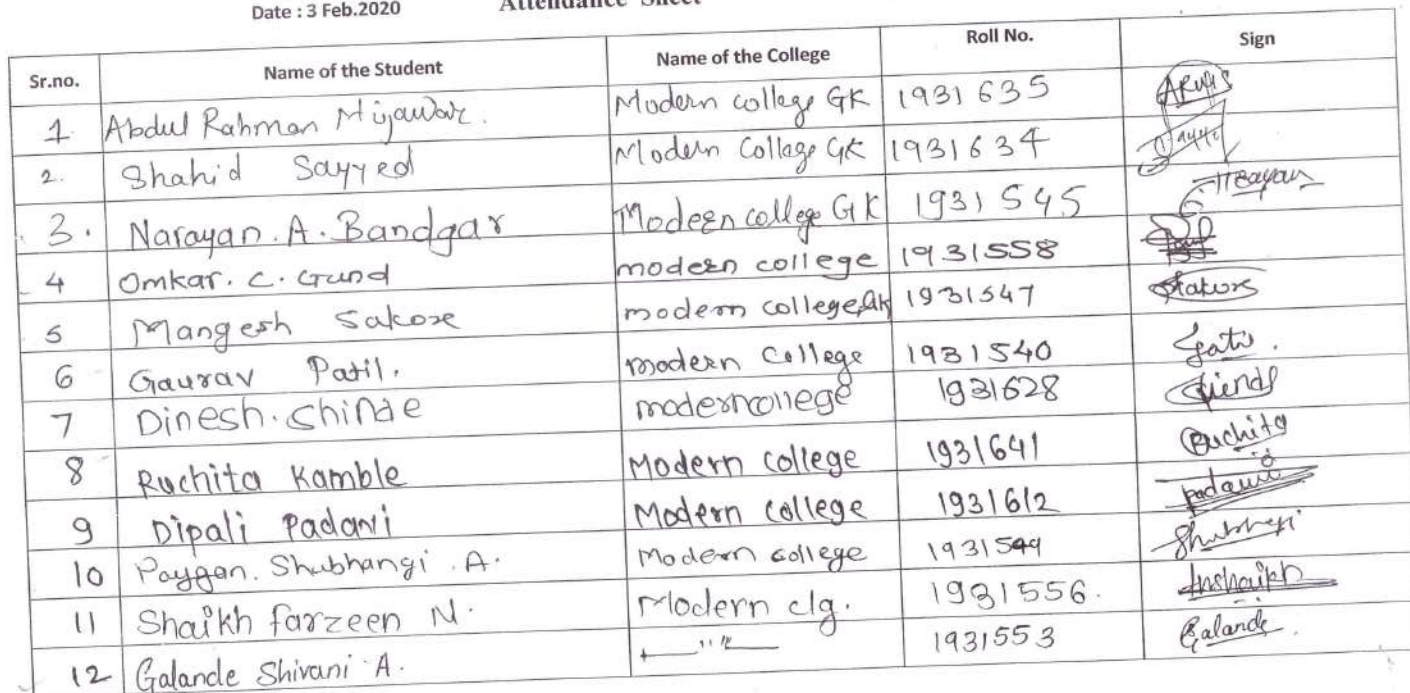 Date : 3 Feb.2020 Attendance Sheet
Sr.no. Name of the Student Name of the College Roll No. Sign
1 Abdul Rahman Mujawar. Modern college GK 1931635
2. Shahid Sayyed Modern College GK 1931634
3. Narayan. A. Bandgar Modern college GK 1931545
4 Omkar. C. Gund modern college 1931558
5 Mangesh Sakore modern college,GK 1931547
6 Gaurav Patil. modern College 1931540
7 Dinesh. Shinde modern college 1931628
8 Ruchita Kamble Modern College 1931641 Ruchita
9 Dipali Padavi Modern College 1931612 padavi
10 Paygan. Shubhangi .A. Modern college 1931549 Shubhangi
11 Shaikh farzeen N. Modern clg. 1931556.
12 Galande Shivani A. —"— 1931553 Galande.